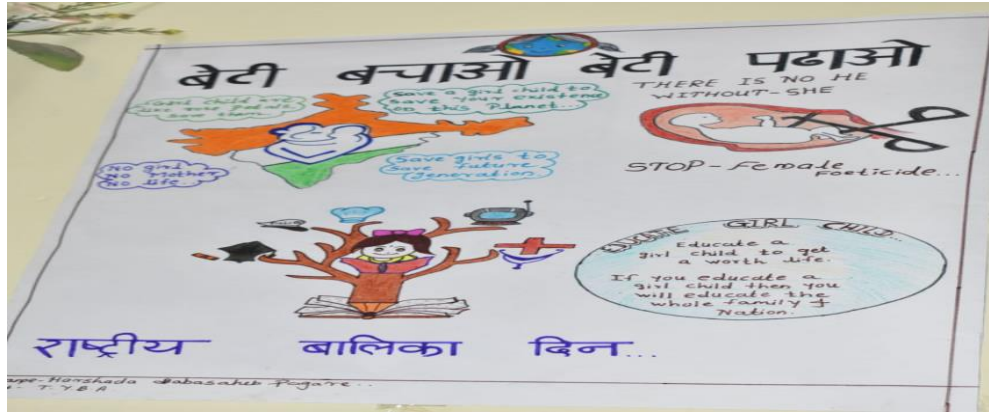 बेटी बचाओ बेटी पढाओ
Girl child are
save them.
Save a girl child to
save your existence
on this Planet...
THERE IS NO HE
WITHOUT-SHE
No girl
No Mother
No life...
Save girls to
save future
generation
STOP-Female
Foeticide...
EDUCATE GIRL CHILD...
Educate a
girl child to get
a worth life.
If you educate a
girl child then you
will educate the
whole family &
Nation.
राष्ट्रीय बालिका दिन...
Harshada Babasaheb Pagare..
T.Y.B.A